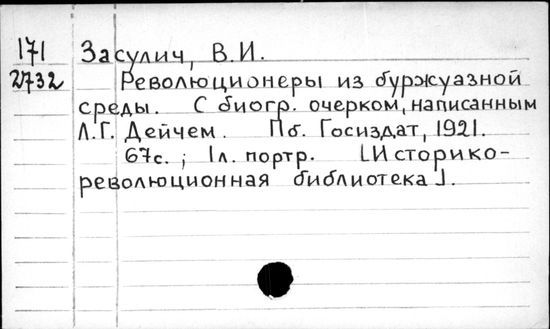 171 Засулич, В.И.
2732 Революционеры из буржуазной
среды. С биогр. очерком, написанным
Л.Г. Дейчем. Пб. Госиздат, 1921.
67с.; 1л. портр. [Историко-
революционная библиотека].